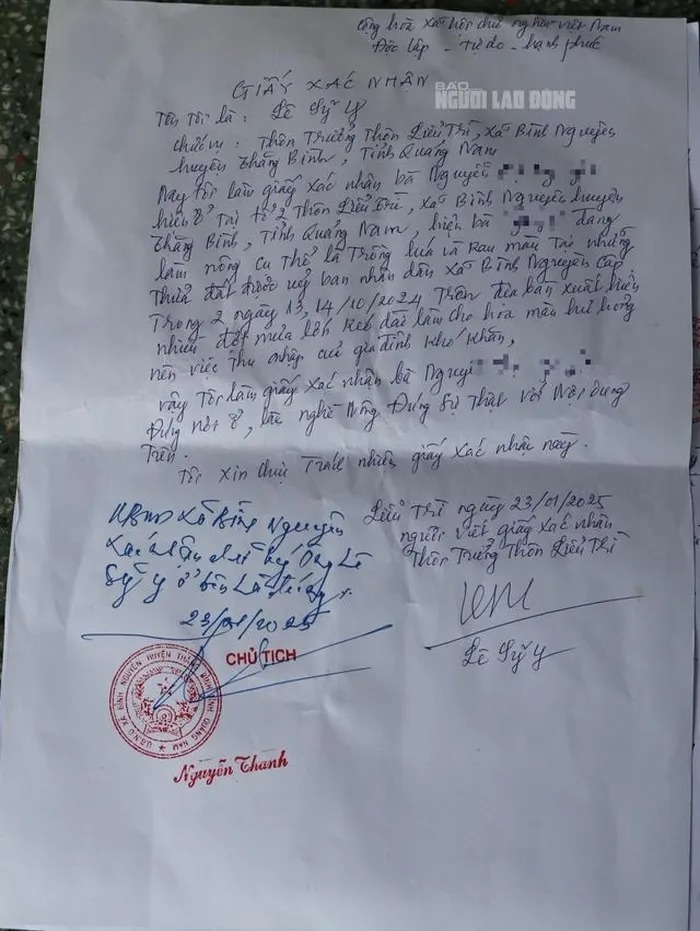 Cộng hòa xã hội chủ nghĩa việt Nam
Độc lập - tự do - hạnh phúc
GIẤY XÁC NHÂN
BÁO
NGƯỜI LAO ĐỘNG
Tên tôi là : Lê Sỹ Y
chức vụ : Thôn Trưởng Thôn Liễu Trì, xã Bình Nguyên
huyện Thăng Bình, Tỉnh Quảng Nam
Nay tôi làm giấy xác nhận bà Nguyễn
hiện ở tại tổ 2 Thôn Liễu Trì, xã Bình Nguyên huyện
Thăng Bình, Tỉnh Quảng Nam, hiện bà đang
làm nông cụ thể là Trồng lúa và Rau màu Tại những
Thửa đất được uỷ ban nhân dân xã Bình Nguyên cấp
Trong 2 ngày 13, 14/10/2024 Trên địa bàn xuất hiện
nhiều đợt mưa lớn kéo dài làm cho hoa màu hư hỏng
nên việc thu nhập của gia đình khó khăn,
vậy Tôi làm giấy xác nhận bà Nguyễ
Đúng nơi ở, là nghề Nông Đúng sự Thật với Nội dung
Trên.
Tôi xin chịu Trách nhiệm giấy xác nhận này.
Liễu Trì ngày 23/01/2025
người viết giấy xác nhận
Thôn Trưởng Thôn Liễu Trì
Lê Sỹ Y
UBND xã Bình Nguyên
xác nhận chữ ký ông Lê
Sỹ Y ở bên là đúng
23/01/2025
CHỦ TỊCH
U.B.N.D XÃ BÌNH NGUYÊN HUYỆN THĂNG BÌNH TỈNH QUẢNG NAM
Nguyễn Thanh